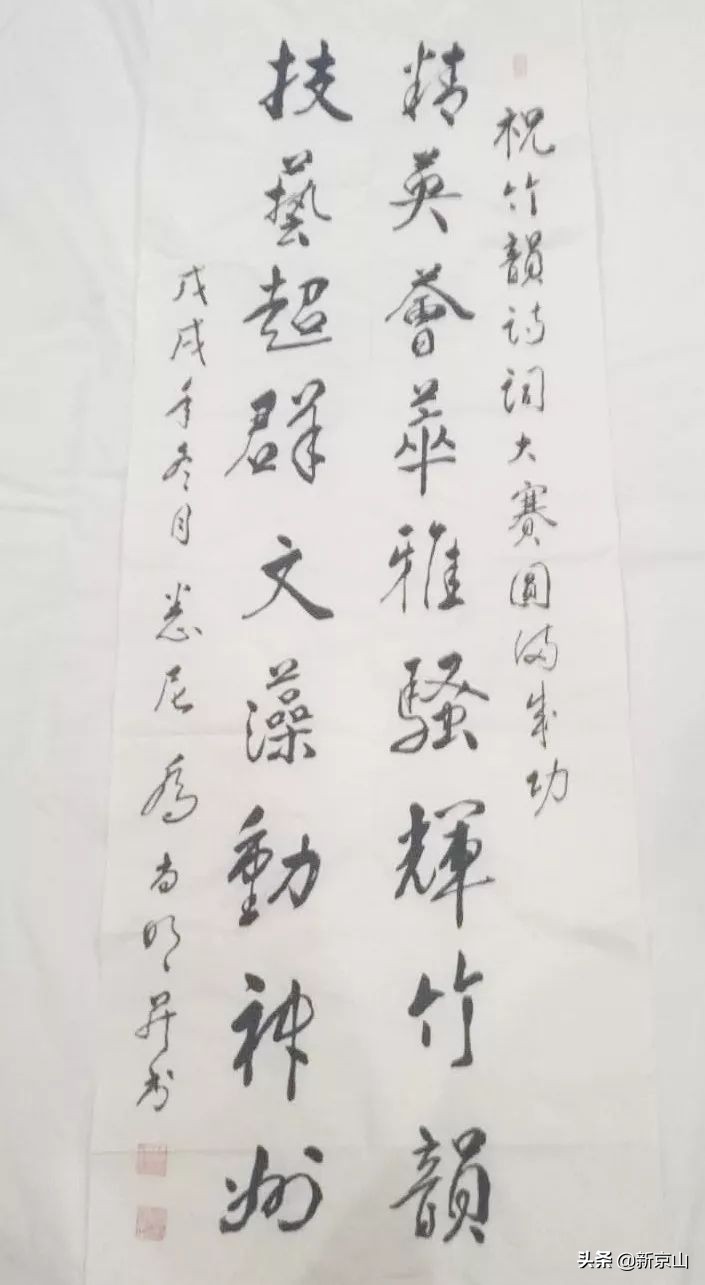 祝竹韻詩词大賽圓满成功
精英薈萃雅騷輝竹韻
技藝超群文藻動神州
戊戌年冬月悉尼喬尚明并书
头条 @新京山